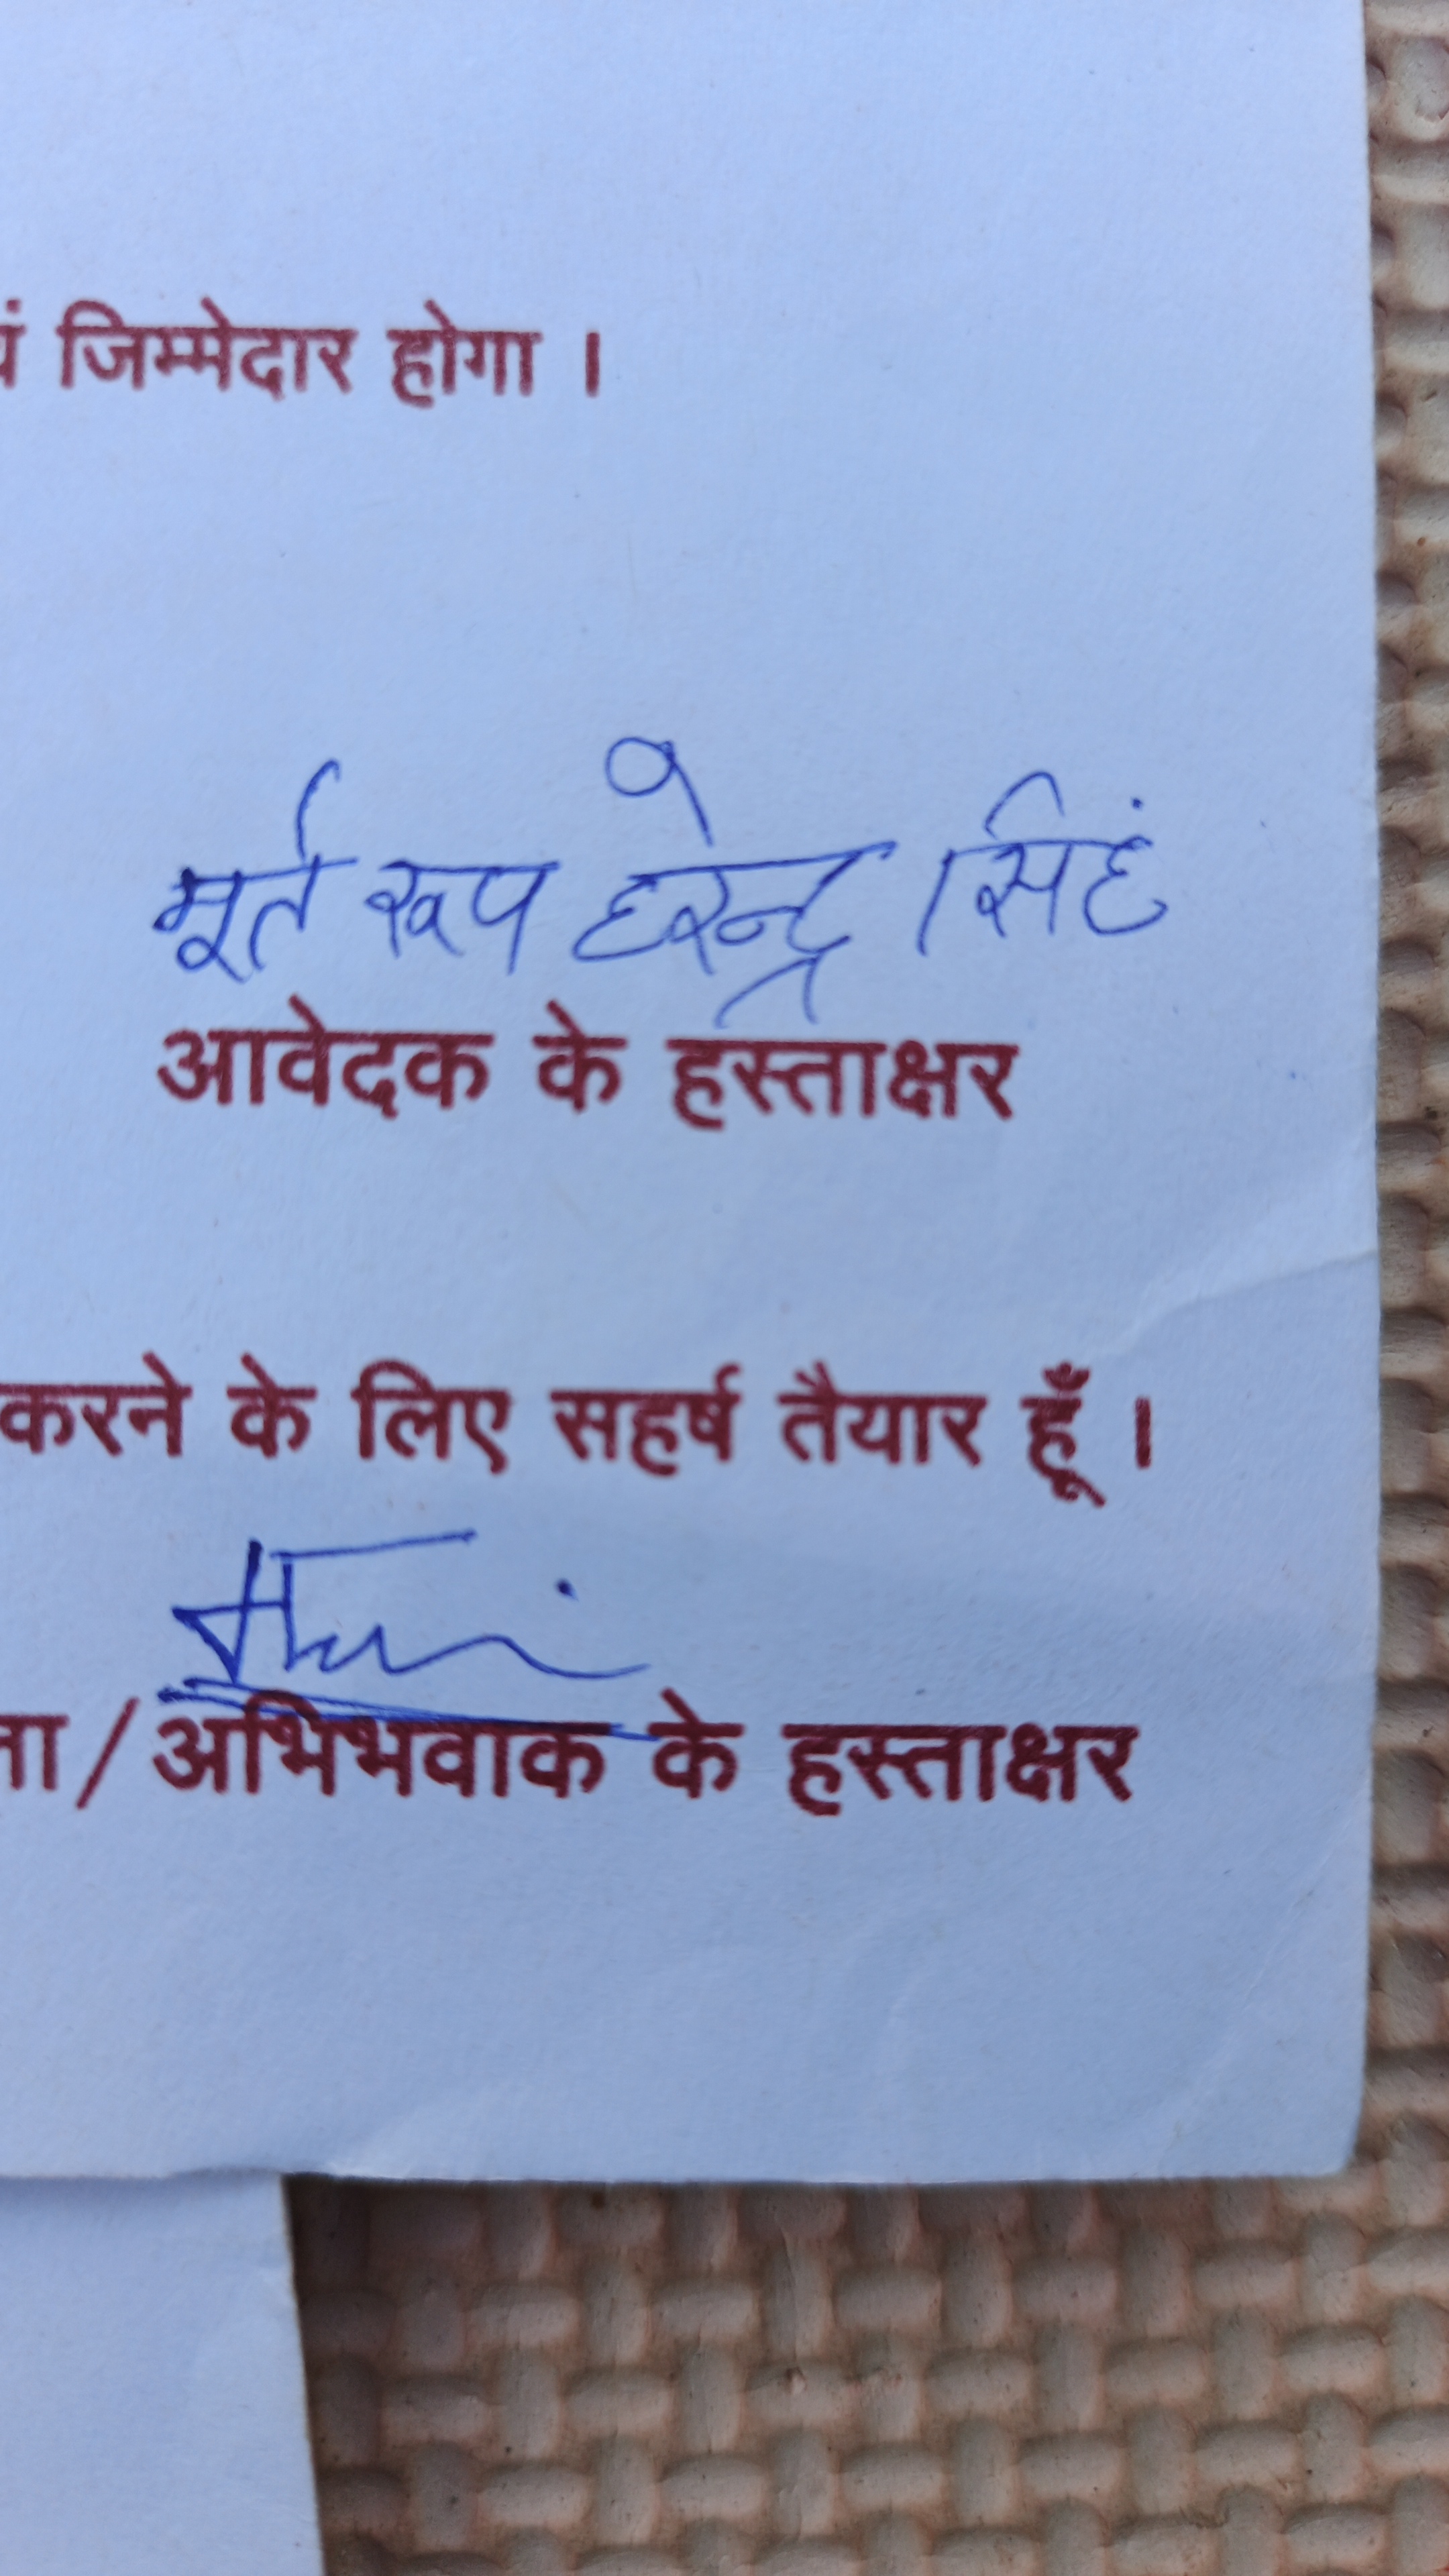 जिम्मेदार होगा ।
मूर्त रूप हरेन्द्र सिहं
आवेदक के हस्ताक्षर
करने के लिए सहर्ष तैयार हूँ ।
/ अभिभवाक के हस्ताक्षर